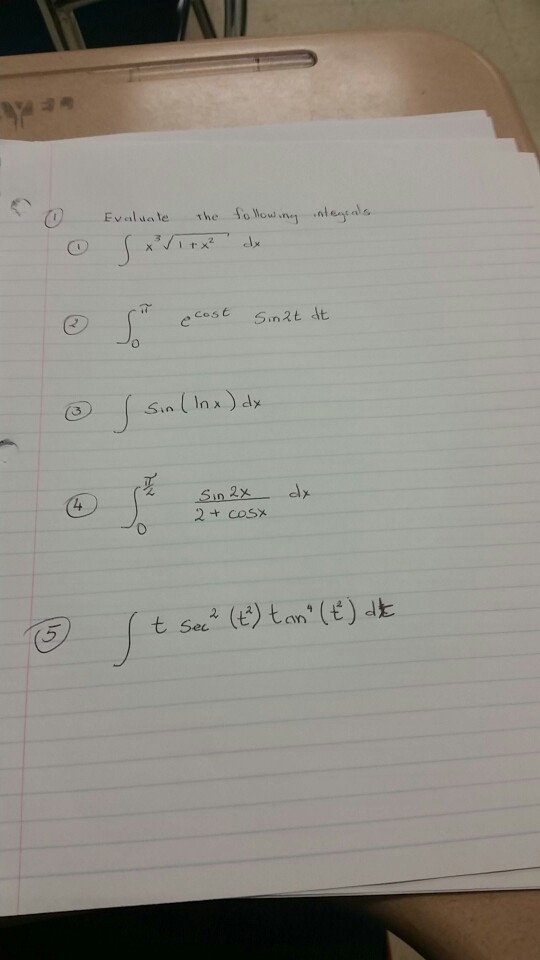 ① Evaluate the following integrals
① ∫ x³√(1 + x²) dx
② ∫₀^π e^cost Sin2t dt
③ ∫ Sin(lnx) dx
④ ∫₀^(π/2) (Sin 2x)/(2 + cosx) dx
⑤ ∫ t sec² (t²) tan⁴ (t²) dt